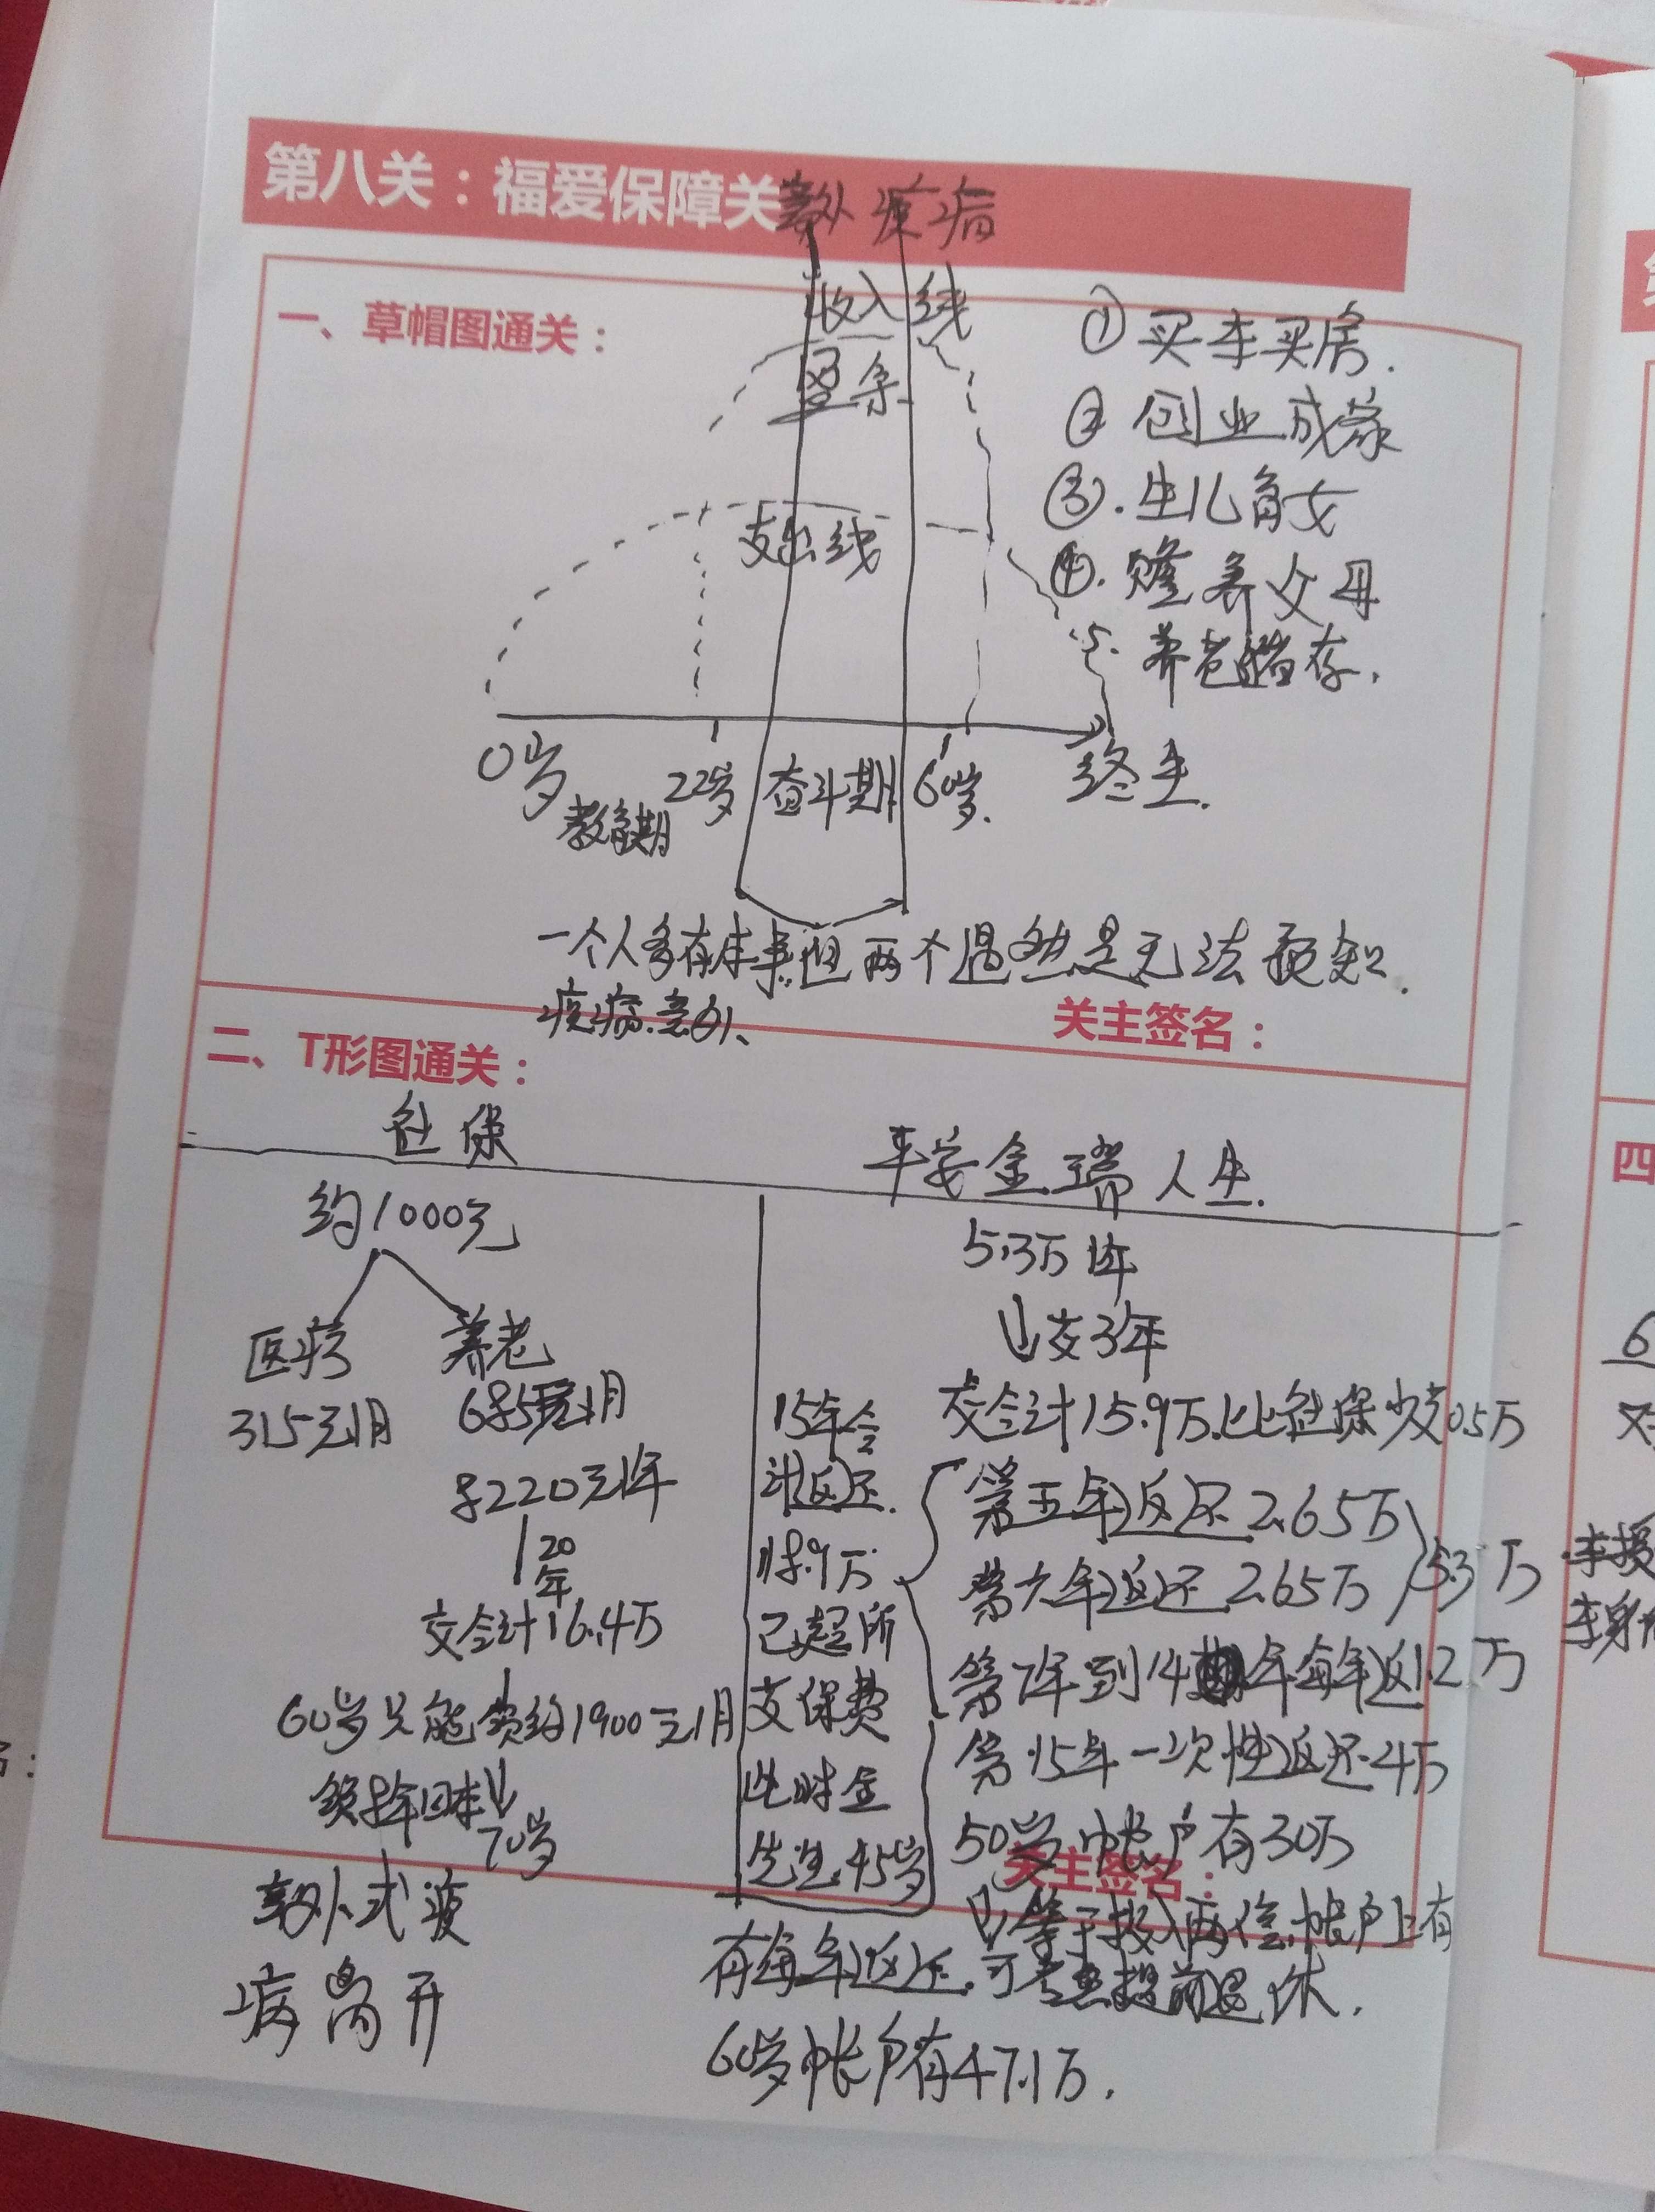 第八关：福爱保障关
意外 疾病
一、草帽图通关：
收入线
盈余
支出线
① 买车买房.
② 创业成家
③. 生儿育女
④. 赡养父母
5. 养老储存.
0岁
教育期
22岁
奋斗期
60岁.
终生.
一个人多有本事,但两个偶然是无法预知.
疾病.意外、
关主签名：
二、T形图通关：
社保
平安金瑞人生.
约1000元
医疗 养老
315元1月 685元1月
8220元1年
20年
交合计16.4万
60岁只能领约1900元1月
70岁
意外或疾
病离开
5.3万1年
交3年
交合计15.9万.比社保少交0.5万
第五年返还2.65万
第六年返还2.65万
5.3万
第7年到14年每年返1.2万
第15年一次性返还4万
50岁帐户有30万
等于投入两倍,帐户上有
15年合
计返还.
18.9万.
已超所
交保费
此时金
先生45岁
有每年返还,可考虑提前退休.
60岁帐户有47.1万.
关主签名：
四
6